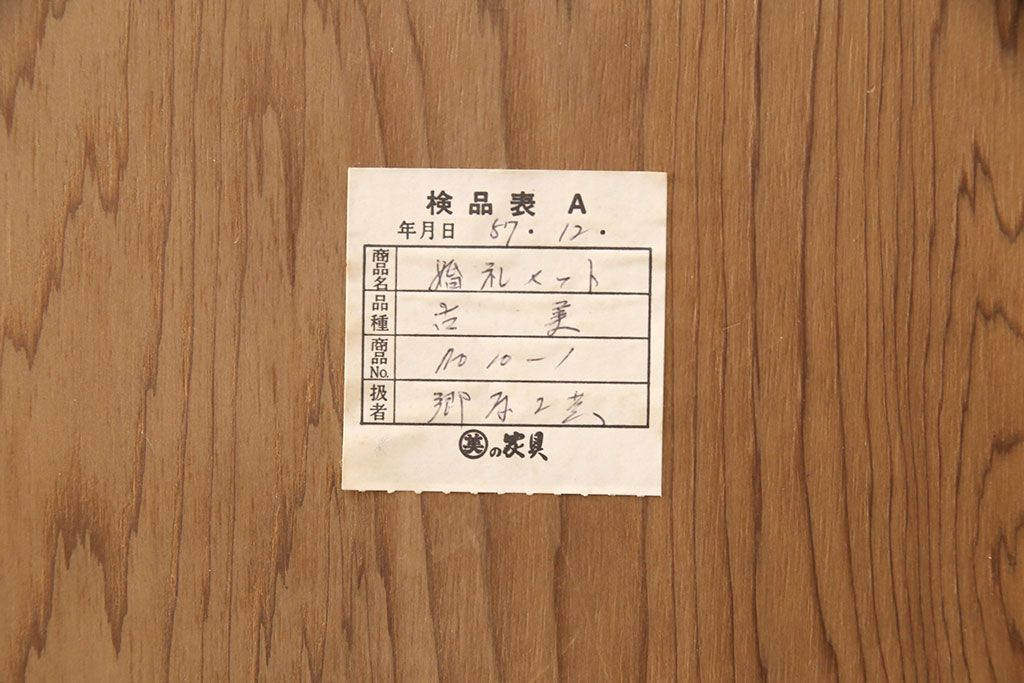 検品表 A
年月日 57・12・
商品名 婚礼セット
品種 吉 美
商品No. No 10-1
扱者 郷原工芸
美の家具